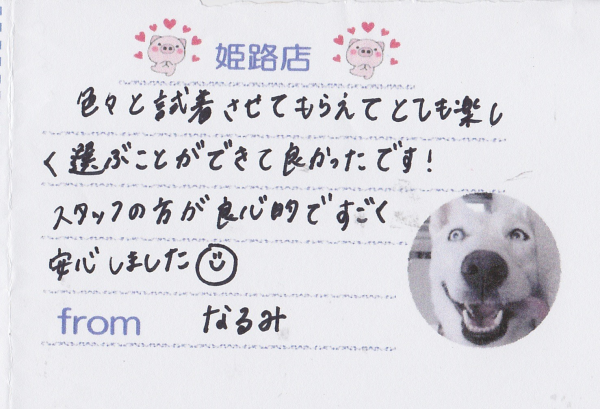 姫路店
色々と試着させてもらえてとても楽し
く選ぶことができて良かったです!
スタッフの方が良心的ですごく
安心しました
from なるみ